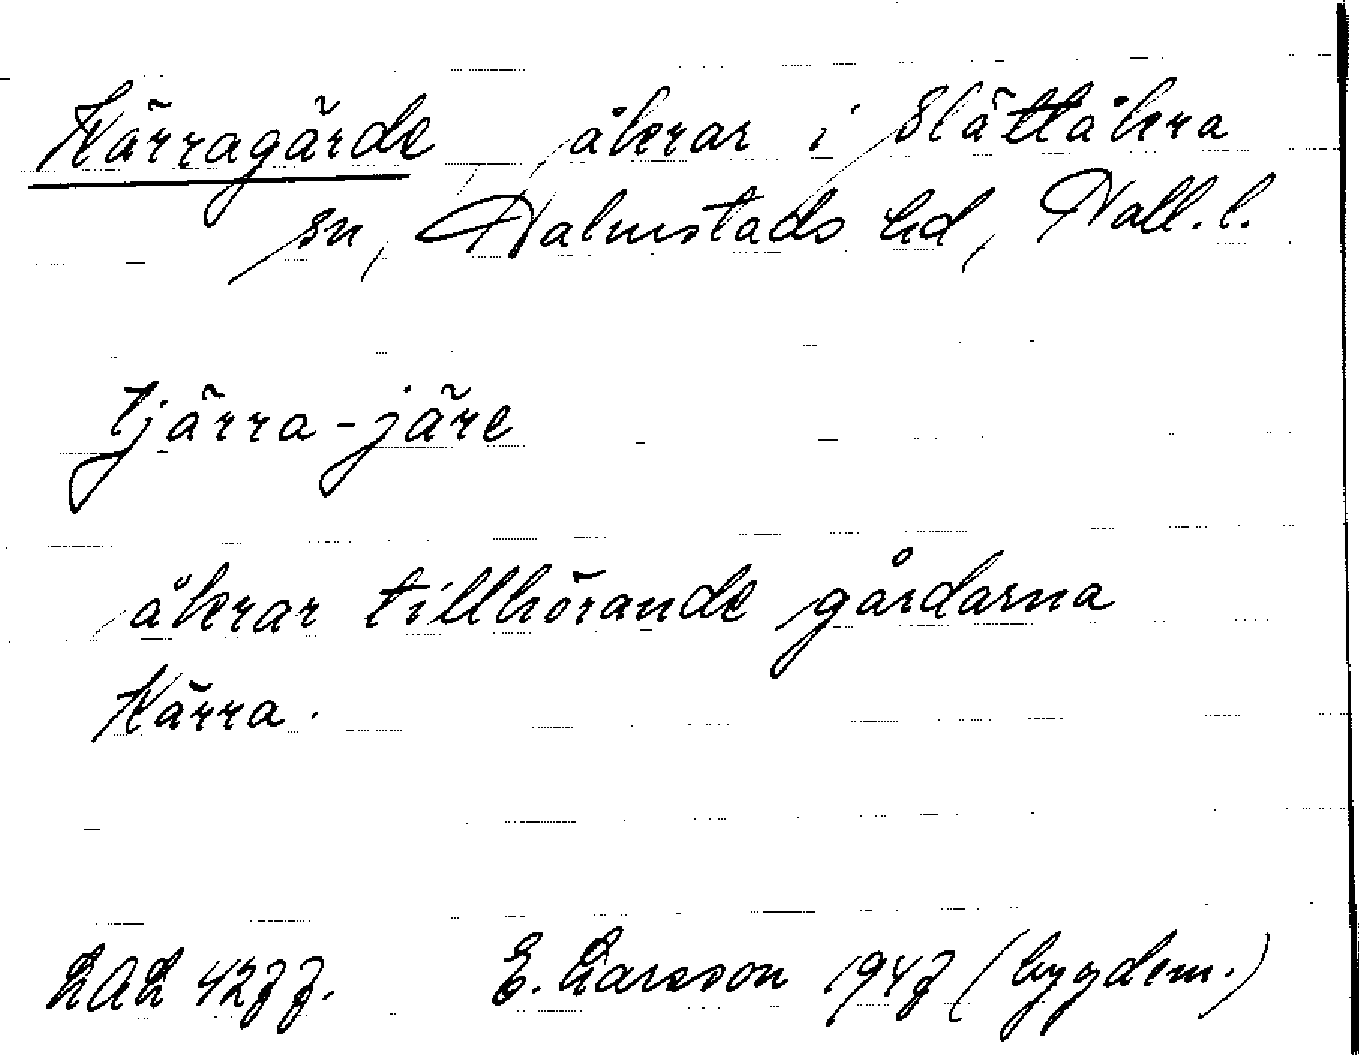 Kärragärde, åkrar i Slättåkra
sn, Halmstads hd, Hall. l.
tjärra-järe
åkrar tillhörande gårdarna
Kärra.
LAL 4277. E. Larsson 1947 (bygdem.)